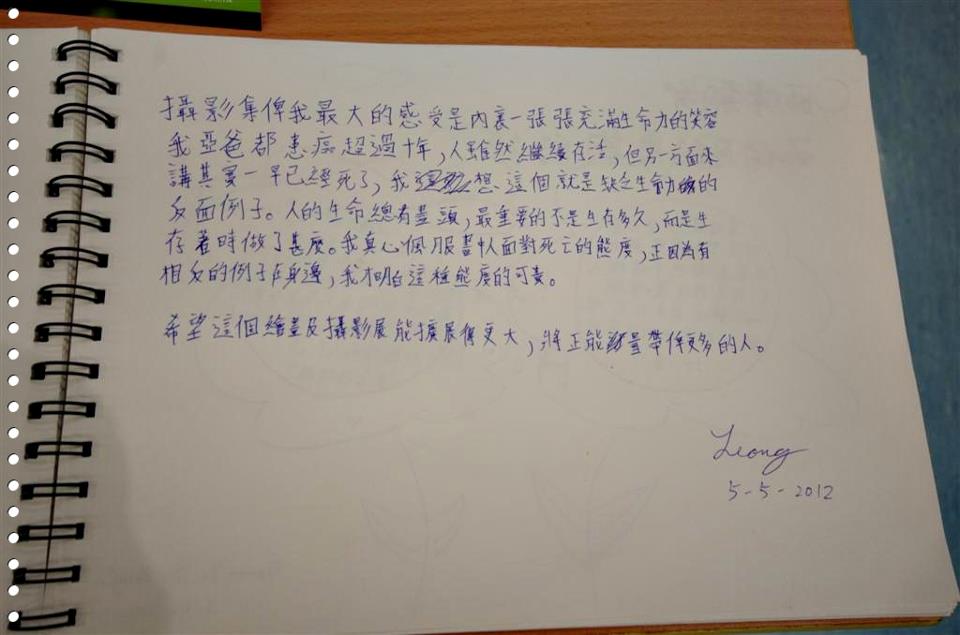 攝影集俾我最大的感受是內裏一張張充滿生命力的笑容
我亞爸都患癌超過十年，人雖然繼續在活，但另一方面來
講其實一早已經死了，我想這個就是缺乏生命力的
反面例子。人的生命總有盡頭，最重要的不是生在多久，而是生
存著時做了甚麼。我真心佩服畫中人面對死亡的態度，正因為有
相反的例子在身邊，我才明白這種態度的可貴。
希望這個繪畫及攝影展能擴展得更大，將正能量帶俾更多的人。
Leong
5-5-2012